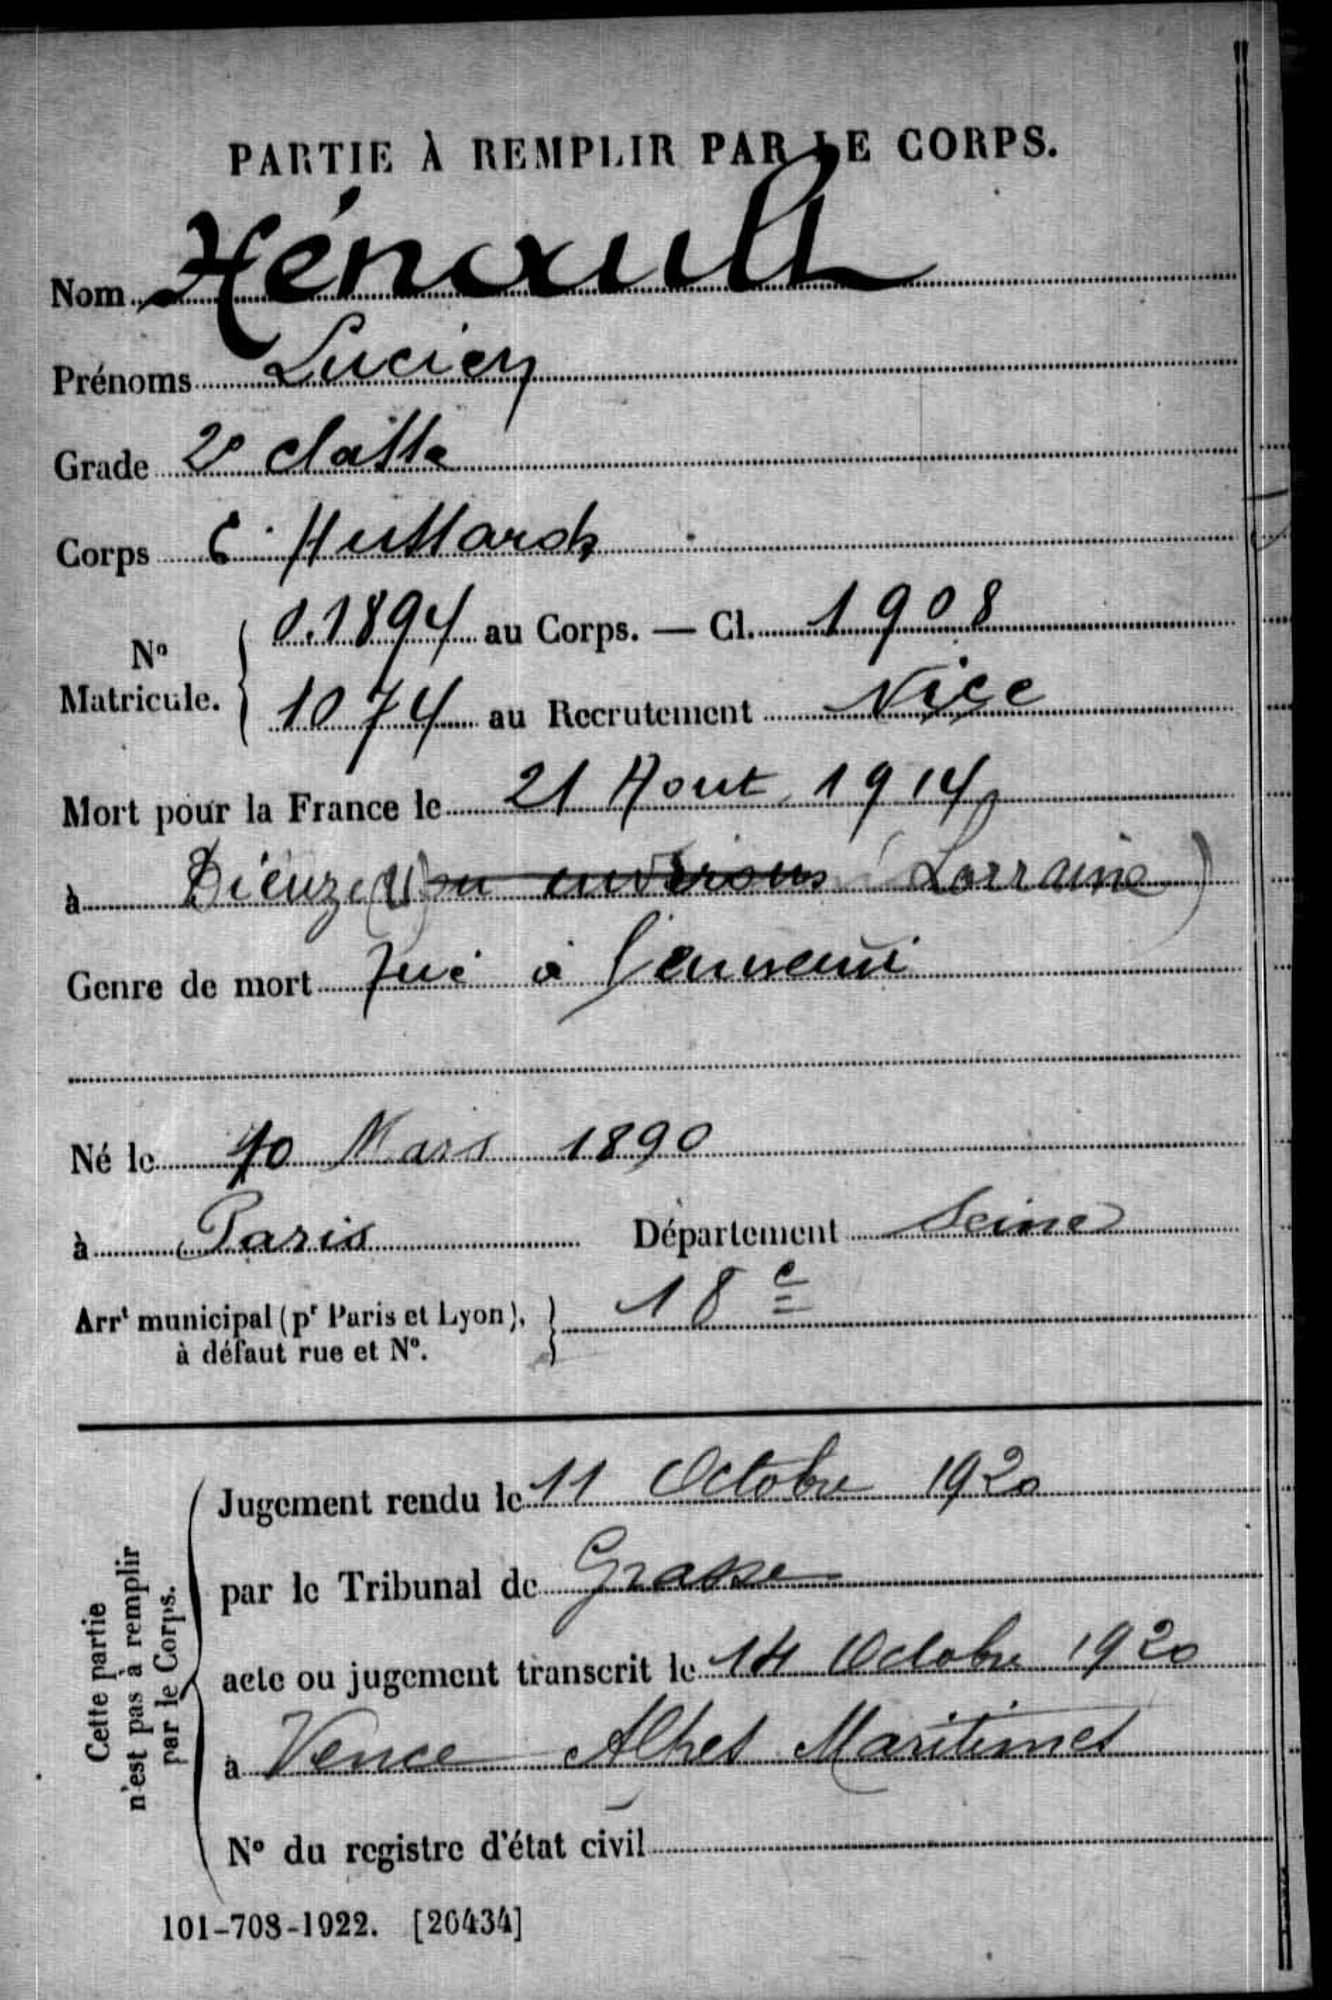 PARTIE À REMPLIR PAR LE CORPS.
Nom Hénault
Prénoms Lucien
Grade 2e classe
Corps 6e Hussards
No Matricule. 0.1894 au Corps. — Cl. 1908
1074 au Recrutement Nice
Mort pour la France le 21 Aout 1914
à Dieuze (ou environs Lorraine)
Genre de mort Tué à l'ennemi
Né le 10 Mars 1890
à Paris Département Seine
Arrt municipal (pr Paris et Lyon), 18e
à défaut rue et No.
Cette partie
n'est pas à remplir
par le Corps.
Jugement rendu le 11 Octobre 1920
par le Tribunal de Grasse
acte ou jugement transcrit le 14 Octobre 1920
à Vence Alpes Maritimes
No du registre d'état civil
101-708-1922. [26434]